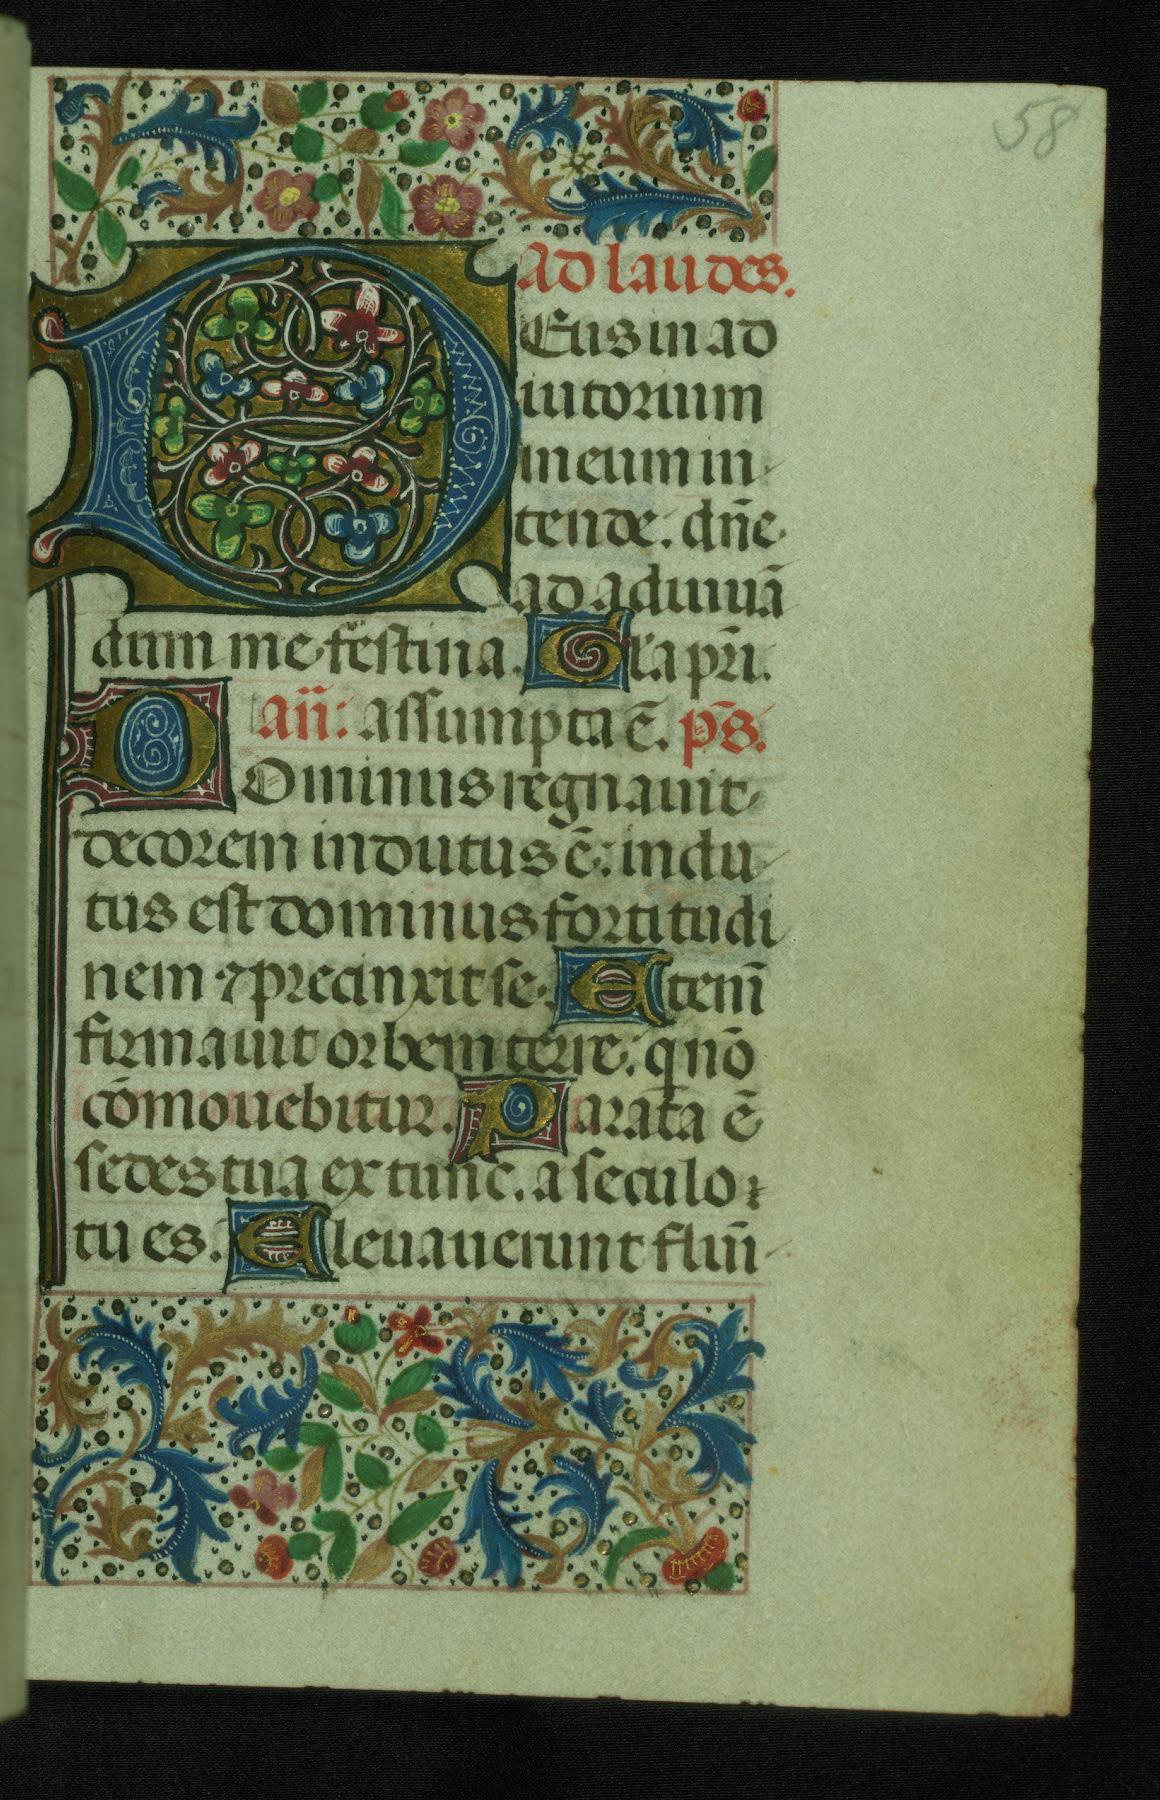 58
Ad laudes.
DEus in ad
iutorium
meum in
tende. dn̄e
ad adiuuā
dum me festina. Gl'a pr̄i.
an̄: assumpta ē. ps̄.
DOminus regnauit
decorem indutus ē: indu
tus est dominus fortitudi
nem ⁊ precinxit se. Eteni̅
firmauit orbem terre: q nō
cōmouebitur. Parata ē
sedes tua ex tunc. a seculo
tu es. Eleuauerunt flui̅